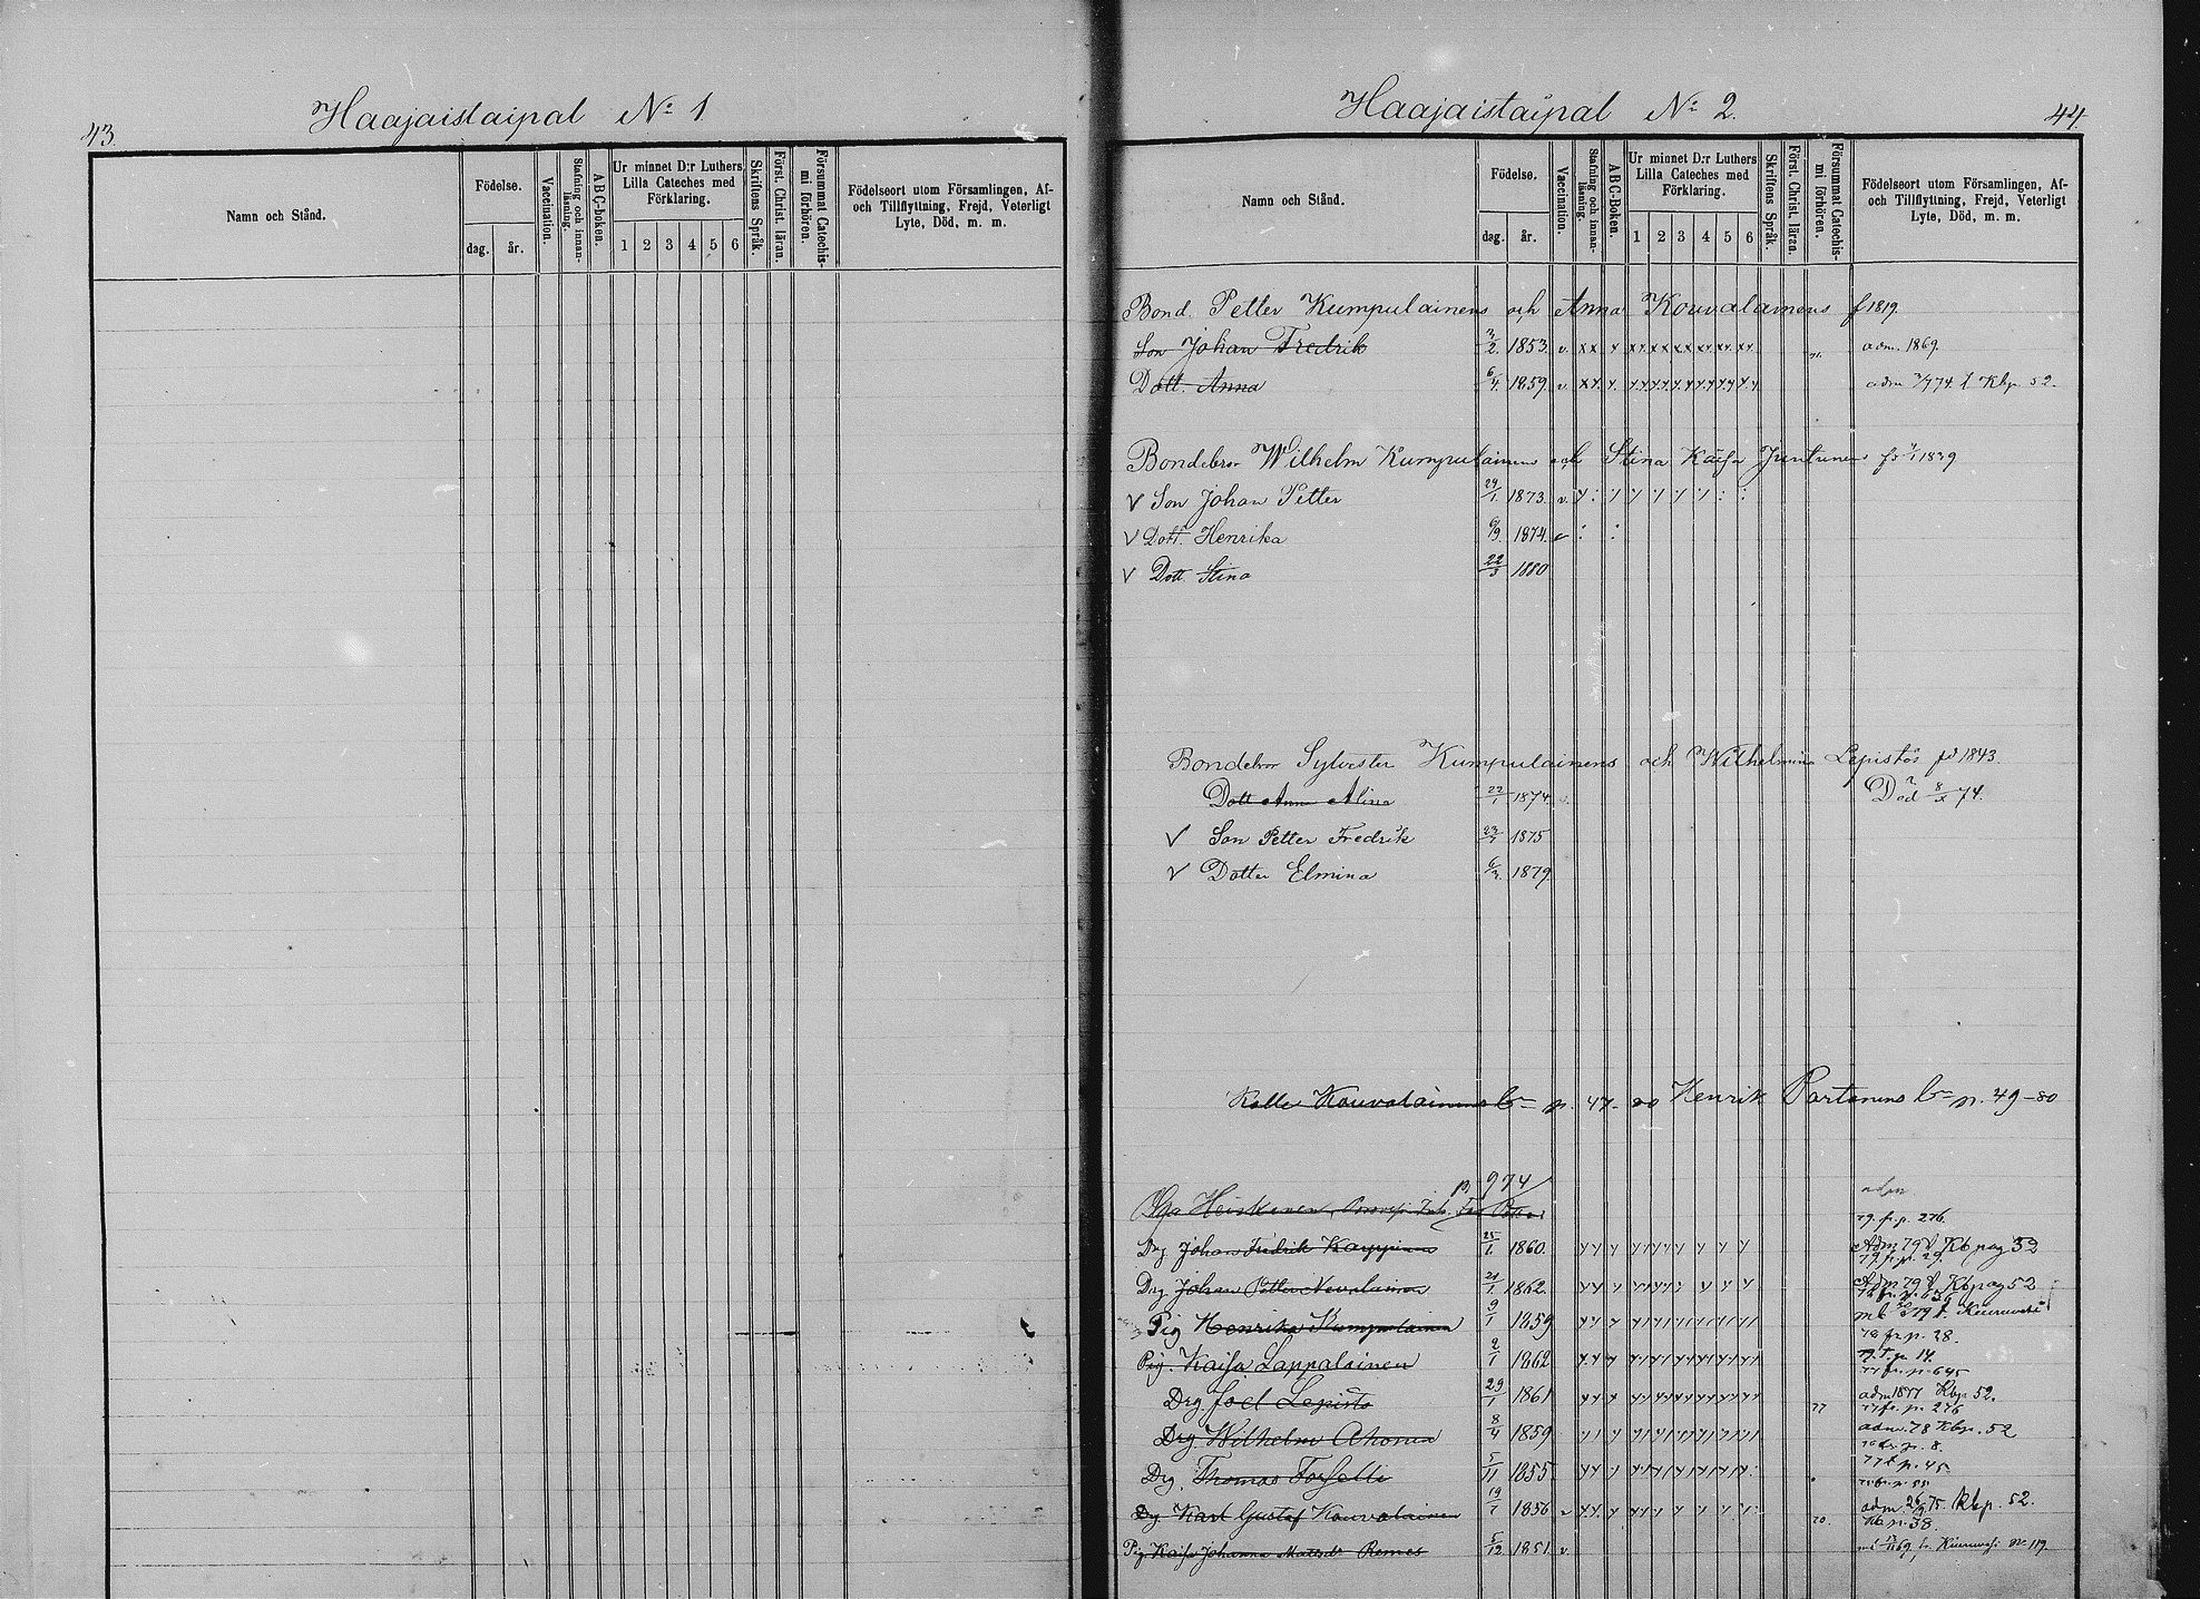 43.
Haajaistaipal No 1
Namn och Stånd.
Födelse.
dag.
år.
Vaccination.
Stafning och innan-
läsning.
ABC-boken.
Ur minnet D:r Luthers
Lilla Cateches med
Förklaring.
1 2 3 4 5 6
Skriftens Språk.
Först. Christ. läran.
Försummat Catechis-
mi förhören.
Födelseort utom Församlingen, Af-
och Tillflyttning, Frejd, Veterligt
Lyte, Död, m. m.
Haajaistaipal No 2.
44.
Namn och Stånd.
Födelse.
dag.
år.
Vaccination.
Stafning och innan-
läsning.
ABC-Boken.
Ur minnet D:r Luthers
Lilla Cateches med
Förklaring.
1 2 3 4 5 6
Skriftens Språk.
Först. Christ. läran.
Försummat Catechis-
mi förhören.
Födelseort utom Församlingen, Af-
och Tillflyttning, Frejd, Veterligt
Lyte, Död, m. m.
Bond. Petter Kumpulainens och Anna Kouvalainens f 1819.
Son Johan Fredrik 3/2 1853. v. adm. 1869.
Dott. Anna 6/4 1859 v Kbp. 52.
Bondebror Wilhelm Kumpulainens och Stina Kaisa Juntunens 1839
V Son Johan Petter 29/1 1873. v.
V Dott. Henrika 6/9 1874. v
V Dott Stina 22/3 1880
Bondebror Sylvester Kumpulainens och Wilhelmina Lepistös fd 1843
Dott Anna Alina 22/1 1874. Död 8/x 74.
V Son Petter Fredrik 1875
V Dotter Elmina 1879
Kalle Kouvalainens p. 47-80 Henrik Partanens p. 49-80
p. 974
Heiskanen
adm
79. fr. p. 276.
Drg Johan Fredrik Karppinen 25/1 1860. Adm 79 Kb pag 52
79. fr. p. 29.
Drg Johan Petter Nevalainen 21/1 1862. Adm 79 Kb pag 52
Pig Henrika Kumpulainen 9/1 1859 Kiuruvesi
78 fr p. 28.
Pig. Kaisa Lappalainen 2/1 1862 79. t. p. 14.
77 fr. p. 645
Drg. Joel Lepistö 29/1 1861 adm 1877 Kbp 52.
77 77 fr. p. 276
Drg. Wilhelm Ahonen 8/4 1859 adm. 78 Kbp. 52
p. 8.
Drg. Thomas Forsell 5/11 1855 77 t p. 45
Dg. Karl Gustaf Kouvalainen 19/1 1856 v adm. 75. Kbp. 52.
70. Kb p. 38.
Pig. Kaisa Johanna Mattsdr Remes 5/12 1851 v. fr. Kiuruvesi No 119.